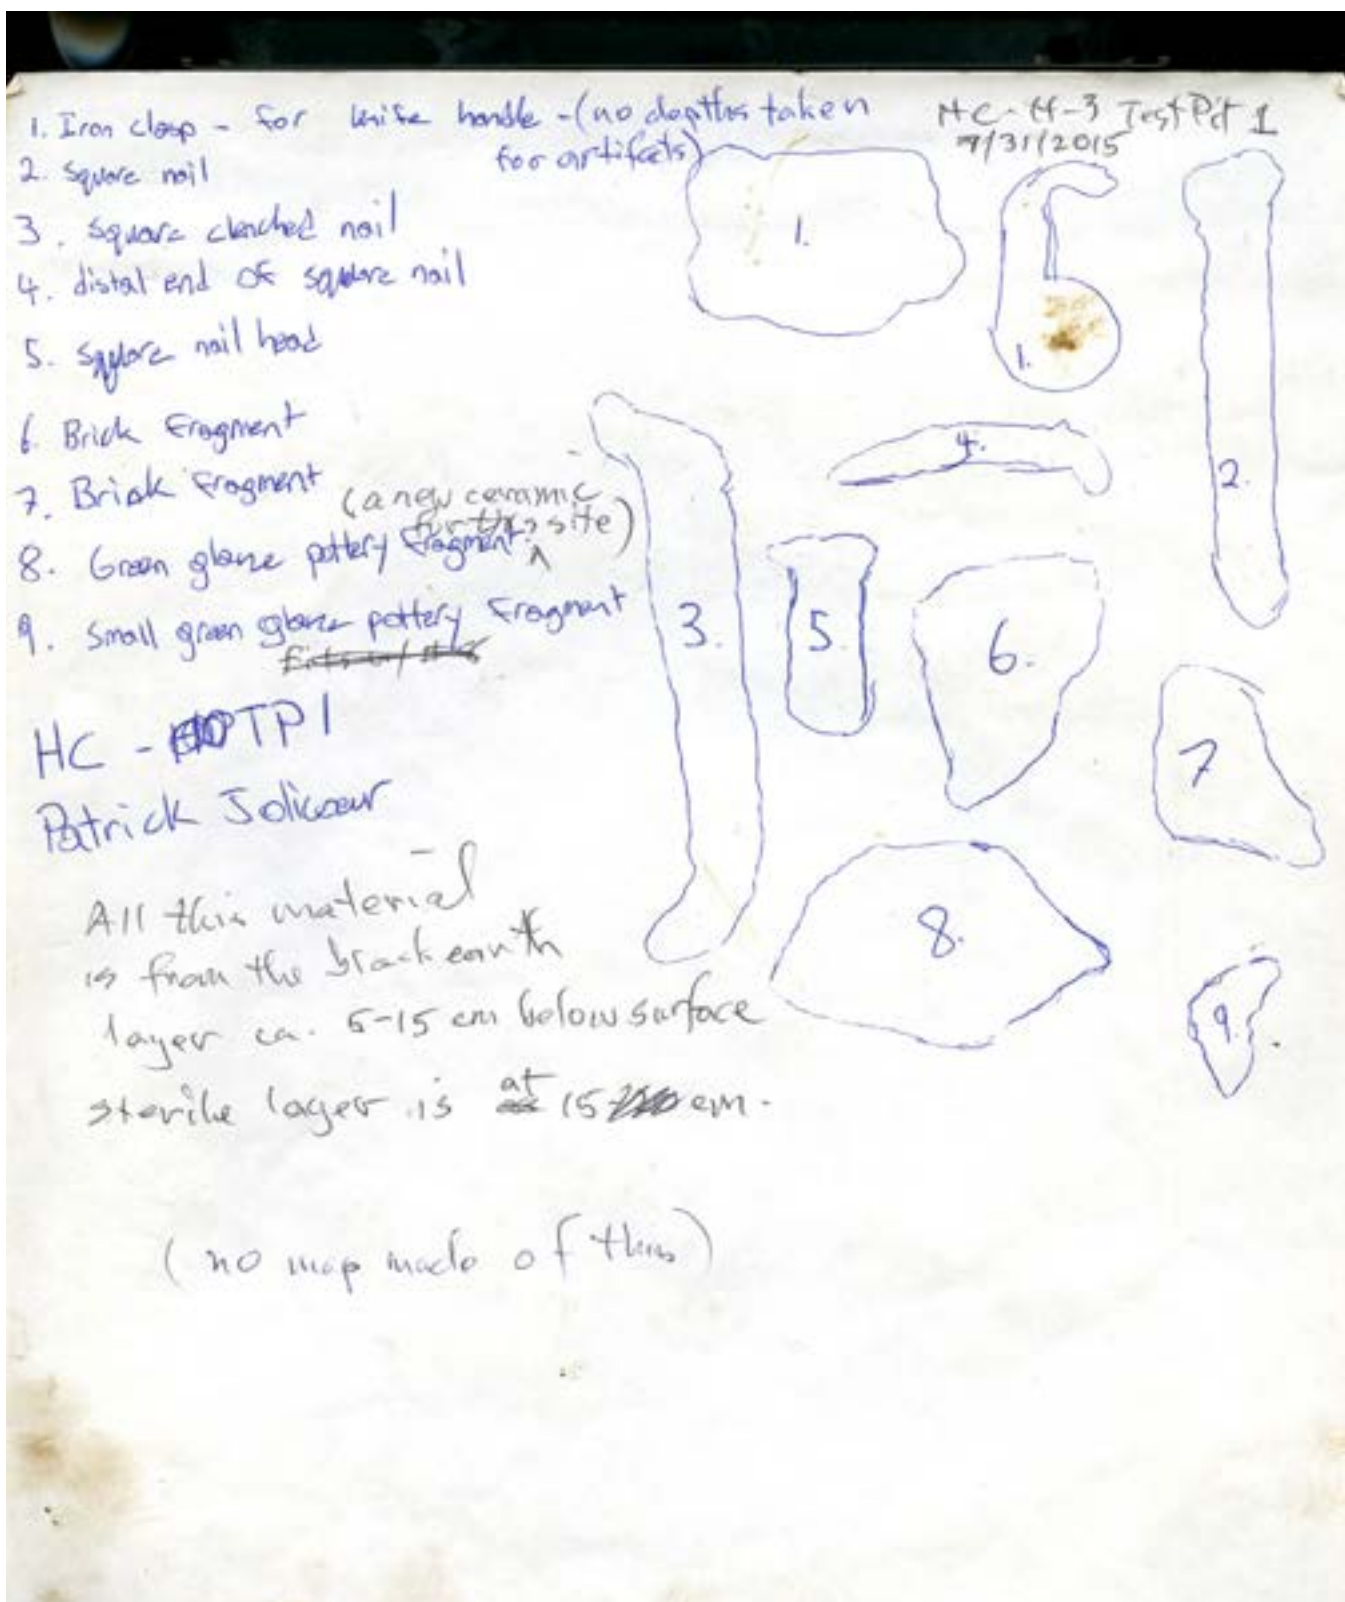 1. Iron clasp - for knife handle - (no depths taken
for artifacts)
HC-H-3 Test Pit 1
7/31/2015
2. Square nail
3. Square clenched nail
4. distal end of square nail
5. Square nail head
6. Brick fragment
7. Brick fragment
(a new ceramic
for this site)
8. Green glaze pottery fragment. ^
9. Small green glaze pottery fragment
HC - TP1
Patrick Jolicoeur
All this material
is from the black earth
layer ca. 5-15 cm below surface
sterile layer is at 15 cm.
(no map made of this)
1.
1.
2.
3.
4.
5.
6.
7
8.
9.